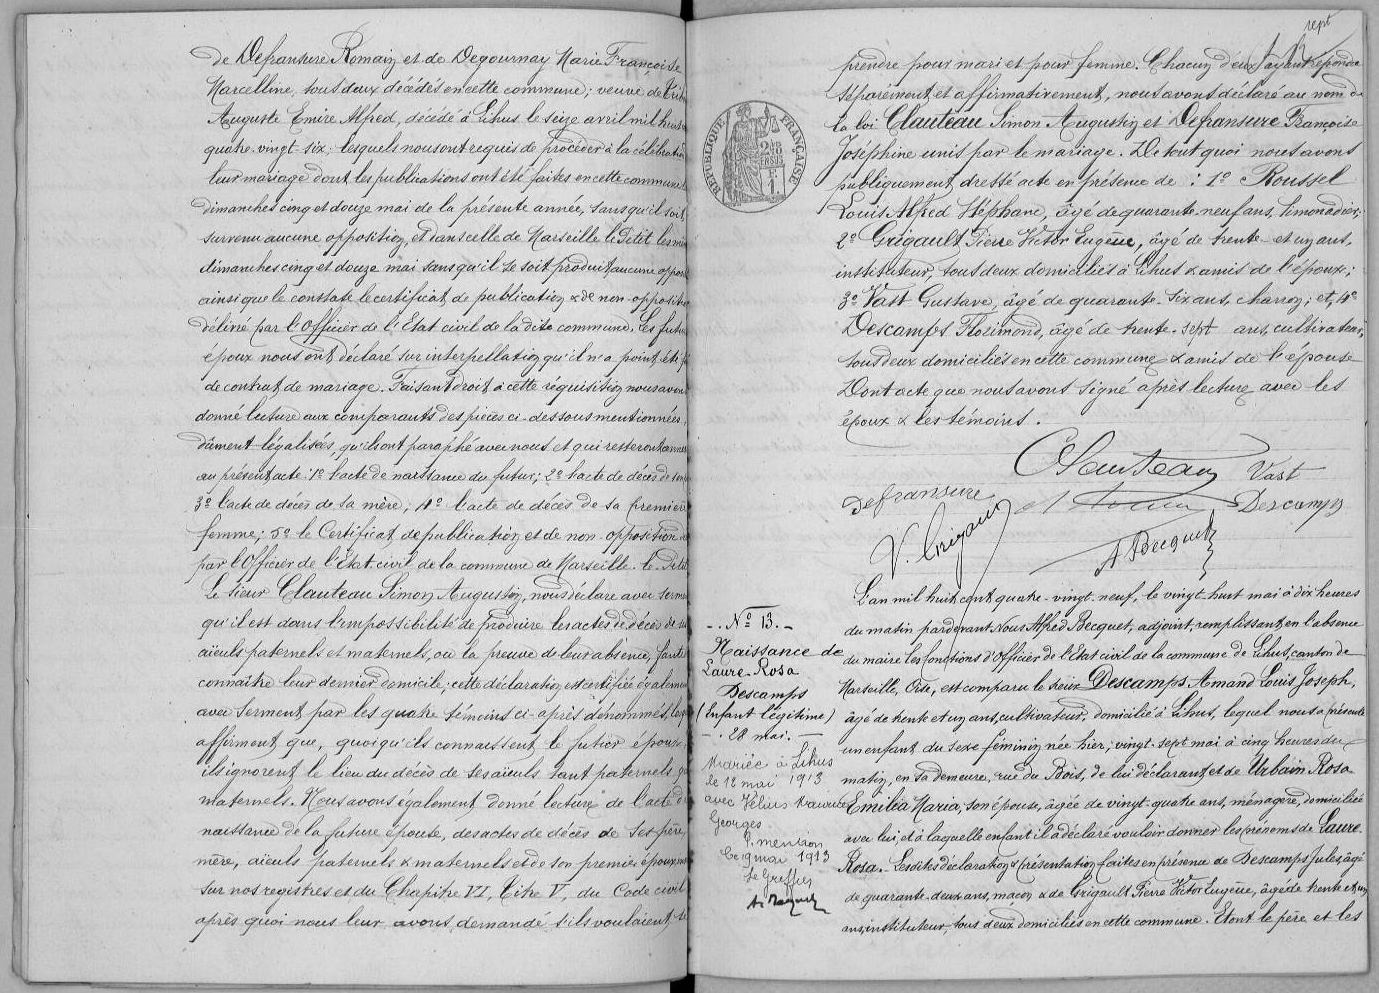 de Defransure Romain et de Degournay Marie Françoise
Marcelline, tous deux décédés en cette commune; veuve de
Auguste Emire Alfred, décédé à Lihus le seize avril mil huit
quatre-vingt-six; lesquels nous ont requis de procéder à la célébration
leur mariage dont les publications ont été faites en cette commune
dimanches cinq et douze mai de la présente année, sans qu'il soit
survenu aucune opposition, et dans celle de Marseille le Petit les
dimanches cinq et douze mai sans qu'il se soit produit aucune
ainsi que le constate le certificat de publication & de non-opposition
délivré par l'Officier de l'Etat civil de la dite commune. Les futurs
époux nous ont déclaré sur interpellation qu'il n'a point été
de contrat de mariage. Faisant droit à cette réquisition nous avons
donné lecture aux comparants des pièces ci-dessous mentionnées,
dûment légalisées, qu'ils ont paraphé avec nous et qui resteront
au présent acte: 1º l'acte de naissance du futur; 2º l'acte de décès de son
3º l'acte de décès de sa mère; 4º l'acte de décès de sa première
femme; 5º le Certificat de publication et de non-opposition
par l'Officier de l'Etat civil de la commune de Marseille-le-Petit
Le sieur Clauteau Simon Augustin, nous déclare avec serment
qu'il est dans l'impossibilité de produire les actes de décès de
aïeuls paternels et maternels, ou la preuve de leur absence, faute
connaître leur dernier domicile; cette déclaration est certifiée également
avec serment par les quatre témoins ci-après dénommés,
affirment que, quoiqu'ils connaissent le futur époux,
ils ignorent le lieu du décès de ses aïeuls tant paternels
maternels. Nous avons également donné lecture de l'acte de
naissance de la future épouse, des actes de décès de ses père,
mère, aïeuls paternels & maternels et de son premier époux,
sur nos registres et du Chapitre VI, titre V, du Code civil
après quoi nous leur avons demandé s'ils voulaient se
sept
prendre pour mari et pour femme. Chacun d'eux ayant répondu
séparément et affirmativement, nous avons déclaré au nom de
la loi Clauteau Simon Augustin et Defransure Françoise
Joséphine unis par le mariage. De tout quoi nous avons
publiquement dressé acte en présence de: 1º Roussel
Louis Alfred Stéphane, âgé de quarante-neuf ans, limonadier;
2º Grigault Pierre Victor Eugène, âgé de trente-et-un ans,
instituteur, tous deux domiciliés à Lihus & amis de l'époux;
3º Vast Gustave, âgé de quarante-six ans, charron; et, 4º
Descamps Florimond, âgé de trente-sept ans, cultivateur,
tous deux domiciliés en cette commune & amis de l'épouse
Dont acte que nous avons signé après lecture avec les
époux & les témoins.
RÉPUBLIQUE FRANÇAISE
Clauteau
Vast
Defransure
Descamps
V. Grigault
A Becquet
Nº 13.
Naissance de
Laure-Rosa
Descamps
(Enfant légitime)
28 mai.
Mariée à Lihus
le 12 mai 1913
avec Vélius Maurice
Georges
P. mention
le 19 mai 1913
Le Greffier
L'an mil huit cent quatre-vingt-neuf, le vingt huit mai à dix heures
du matin pardevant Nous Alfred Becquet, adjoint, remplissant en l'absence
du maire les fonctions d'Officier de l'Etat civil de la commune de Lihus, canton de
Marseille, Oise, est comparu le sieur Descamps Armand Louis Joseph,
âgé de trente et un ans, cultivateur, domicilié à Lihus, lequel nous a présenté
un enfant du sexe féminin née hier, vingt-sept mai à cinq heures du
matin, en sa demeure, rue du Bois, de lui déclarant et de Urbain Rosa
Emilia Maria, son épouse, âgée de vingt-quatre ans, ménagère, domiciliée
avec lui, et à laquelle enfant il a déclaré vouloir donner les prénoms de Laure-
Rosa. Lesdites déclaration & présentation faites en présence de Descamps Jules, âgé
de quarante-deux ans, maçon & de Grigault Pierre Victor Eugène, âgé de trente et un
ans, instituteur, tous deux domiciliés en cette commune. Etont le père et les